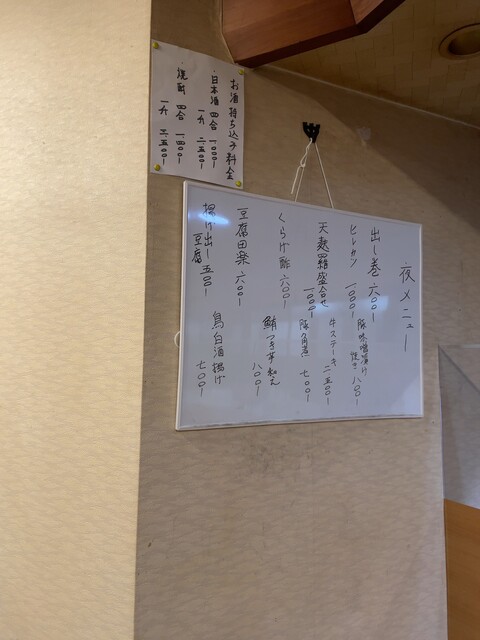 お酒持ち込み料金
・日本酒 四合 一〇〇〇ー
一升 二五〇〇ー
・焼酎 四合 一四〇〇ー
一升 三五〇〇ー
夜メニュー
出し巻 六〇〇ー
ヒレカツ 一〇〇〇ー
天麩羅盛合せ 一〇〇〇ー
くらげ酢 六〇〇ー
豆腐田楽 六〇〇ー
揚げ出し豆腐 五〇〇ー
豚味噌漬け焼き 八〇〇ー
牛ステーキ 二五〇〇ー
豚角煮 七〇〇ー
鮪つき芋和え 八〇〇ー
鳥白酒揚げ 七〇〇ー